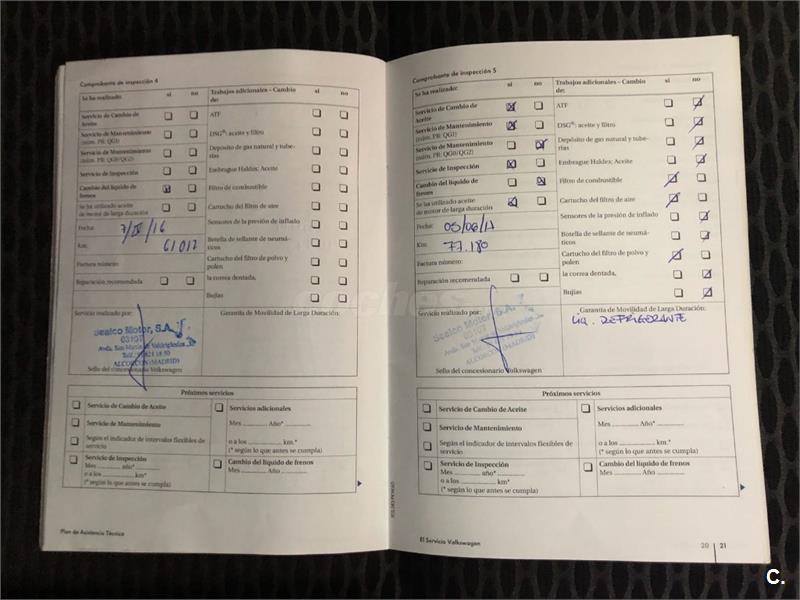 Comprobante de inspección 4
Se ha realizado: si no
Trabajos adicionales – Cambio de: si no
Servicio de Cambio de Aceite
Servicio de Mantenimiento (núm. PR: QG1)
Servicio de Mantenimiento (núm. PR: QG0/QG2)
Servicio de Inspección
Cambio del líquido de frenos
Se ha utilizado aceite de motor de larga duración
Fecha:
Km: 61.017
Factura número:
Reparación recomendada
ATF
DSG®: aceite y filtro
Depósito de gas natural y tuberías
Embrague Haldex: Aceite
Filtro de combustible
Cartucho del filtro de aire
Sensores de la presión de inflado
Botella de sellante de neumáticos
Cartucho del filtro de polvo y polen
la correa dentada,
Bujías
Servicio realizado por:
Sealco Motor, S.A.
03107
ALCORCON (MADRID)
Sello del concesionario Volkswagen
Garantía de Movilidad de Larga Duración:
Próximos servicios
Servicio de Cambio de Aceite
Servicio de Mantenimiento
Según el indicador de intervalos flexibles de servicio
Servicio de Inspección
Mes ........ año* ........
o a los ........ km*
(* según lo que antes se cumpla)
Servicios adicionales
Mes ........ Año* ........
o a los ........ km.*
(* según lo que antes se cumpla)
Cambio del líquido de frenos
Mes ........ Año ........
Plan de Asistencia Técnica
Comprobante de inspección 5
Se ha realizado: si no
Trabajos adicionales – Cambio de: si no
Servicio de Cambio de Aceite
Servicio de Mantenimiento (núm. PR: QG1)
Servicio de Mantenimiento (núm. PR: QG0/QG2)
Servicio de Inspección
Cambio del líquido de frenos
Se ha utilizado aceite de motor de larga duración
Fecha:
Km: 77.180
Factura número:
Reparación recomendada
ATF
DSG®: aceite y filtro
Depósito de gas natural y tuberías
Embrague Haldex: Aceite
Filtro de combustible
Cartucho del filtro de aire
Sensores de la presión de inflado
Botella de sellante de neumáticos
Cartucho del filtro de polvo y polen
la correa dentada,
Bujías
Servicio realizado por:
Sealco Motor, S.A.
03107
ALCORCON (MADRID)
Sello del concesionario Volkswagen
Garantía de Movilidad de Larga Duración:
LIQ. REFRIGERANTE
Próximos servicios
Servicio de Cambio de Aceite
Servicio de Mantenimiento
Según el indicador de intervalos flexibles de servicio
Servicio de Inspección
Mes ........ año* ........
o a los ........ km*
(* según lo que antes se cumpla)
Servicios adicionales
Mes ........ Año* ........
o a los ........ km.*
(* según lo que antes se cumpla)
Cambio del líquido de frenos
Mes ........ Año ........
El Servicio Volkswagen
20 | 21
coches
C.